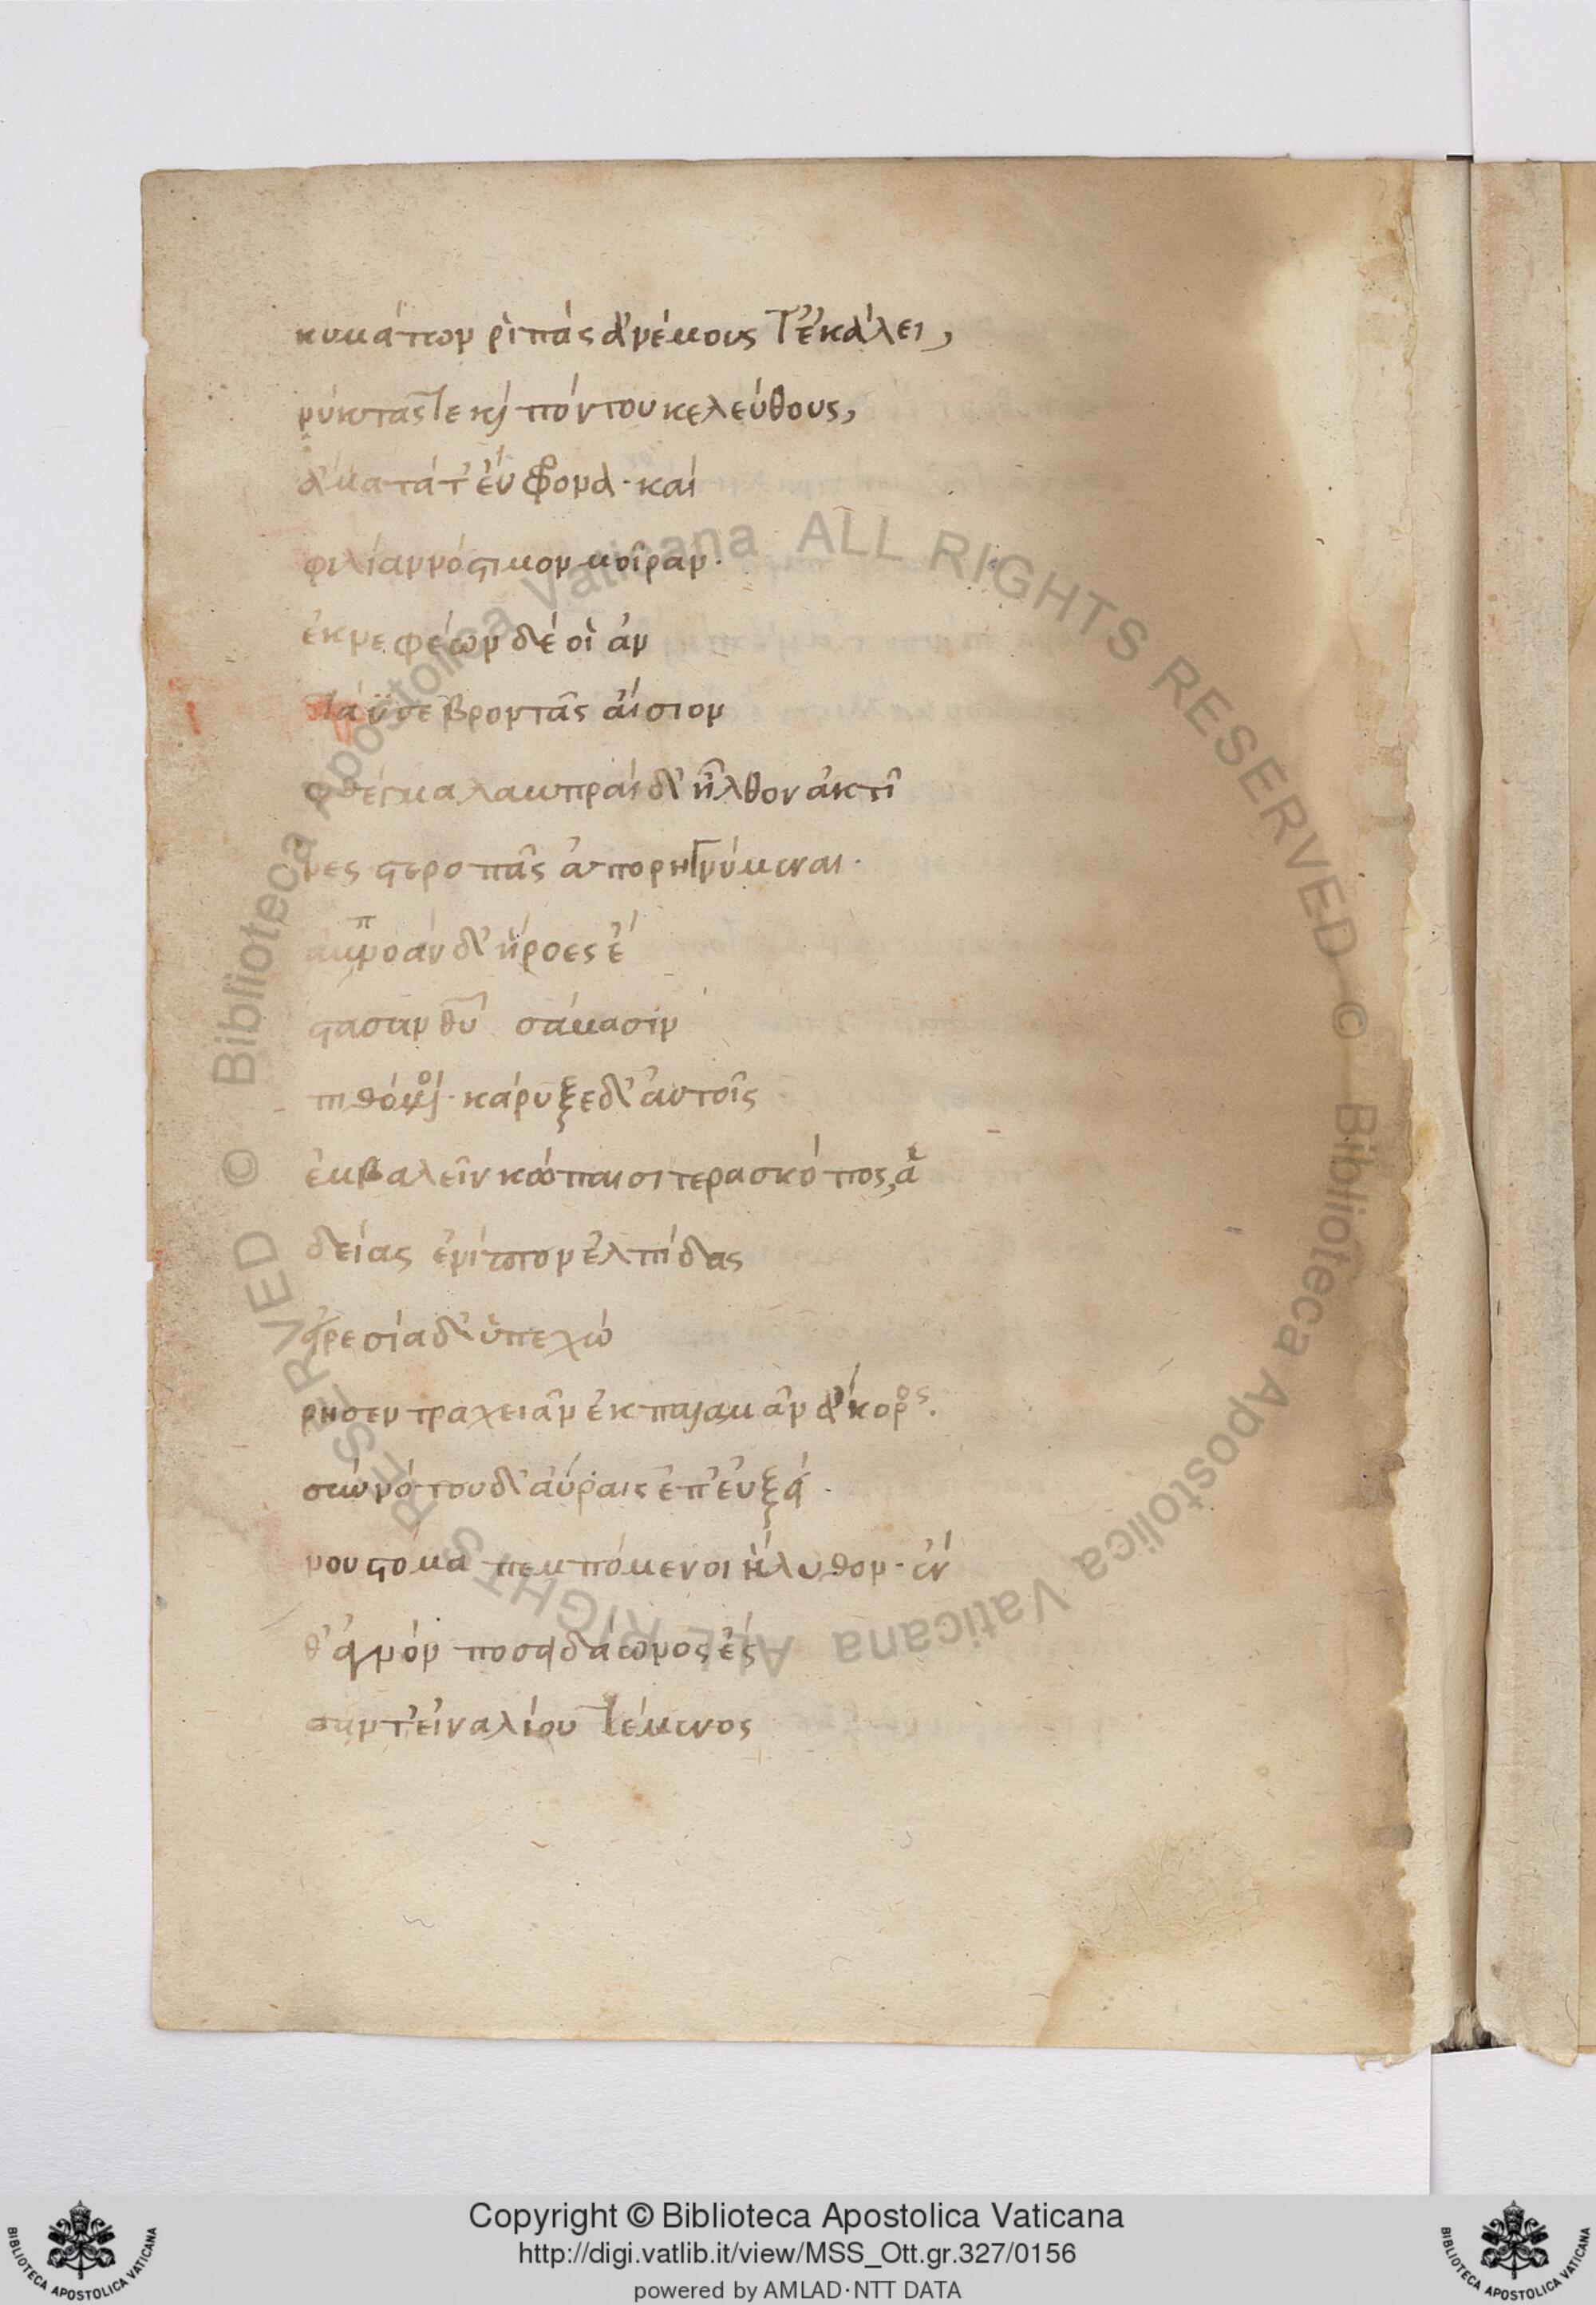 κυμάτων ῥιπὰς ἀνέμους τ' ἐκάλει,
νύκτας τε κ̀ πόντου κελεύθους,
ἄματά τ' εὔφρονα· καὶ
φιλίαν νόστιμον μοῖραν·
ἐκ νεφέων δέ οἱ ἀν
τάϋσε βροντᾶς αἴσιον
φθέγμα λαμπραὶ δ' ἦλθον ἀκτῖ
νες στεροπᾶς ἀπορηγνύμεναι·
ἀμπνοὰν δ' ἥροες ἔ
στασαν θυ σάμασιν
πιθόμοι· κάρυξε δ' αὐτοῖς
ἐμβαλεῖν κώπαισι τερασκόπος, ἁ
δείας ἐνίπτων ἐλπίδας
εἰρεσία δ' ὑπεχώ
ρησεν ταχειᾶν ἐκ παλαμᾶν ἄκορος.
σὺν νότου δ' αὔραις ἐπ' εὐξεί
νου στόμα πεμπόμενοι ἤλυθον· ἐν
θ' ἁγνὸν ποσειδάωνος ἕσ
σαντ' εἰναλίου τέμενος
Copyright © Biblioteca Apostolica Vaticana
http://digi.vatlib.it/view/MSS_Ott.gr.327/0156
powered by AMLAD·NTT DATA
BIBLIOTECA APOSTOLICA VATICANA
BIBLIOTECA APOSTOLICA VATICANA
© Biblioteca Apostolica Vaticana ALL RIGHTS RESERVED © Biblioteca Apostolica Vaticana ALL RIGHTS RESERVED